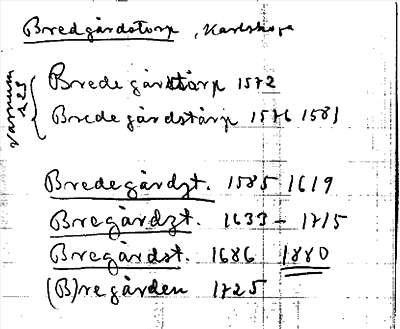 Bredgårdstorp, Karlskoga
Varnum
Bredegårdstårp 1572
Bredegårdstårp 1576 1581
Bredegårdzt. 1585 1619
Bregårdzt. 1633 - 1715
Bregårdst. 1686 1880
(B)regården 1725